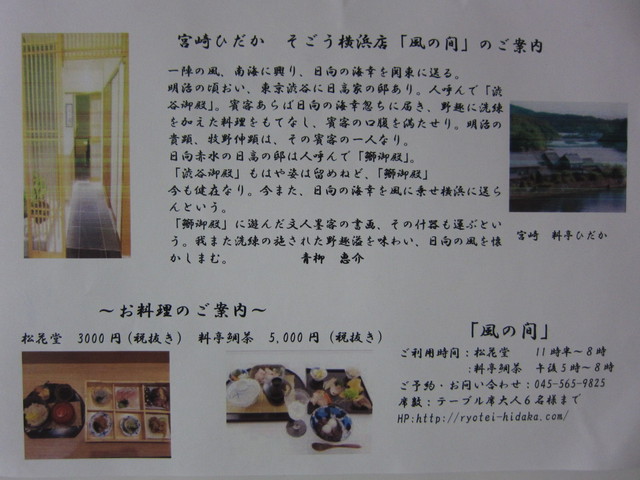 宮崎ひだか　そごう横浜店「風の間」のご案内
一陣の風、南海に興り、日向の海幸を関東に送る。
明治の頃おい、東京渋谷に日高家の邸あり。人呼んで「渋
谷御殿」。賓客あらば日向の海幸忽ちに届き、野趣に洗練
を加えた料理をもてなし、賓客の口腹を満たせり。明治の
貴顕、枚野伸顕は、その賓客の一人なり。
日向赤水の日高の邸は人呼んで「鰤御殿」。
「渋谷御殿」もはや姿は留めねど、「鰤御殿」
今も健在なり。今また、日向の海幸を風に乗せ横浜に送ら
んという。
「鰤御殿」に遊んだ文人墨客の書画、その什器も運ぶとい
う。我また洗練の施された野趣溢を味わい、日向の風を懐
かしまむ。　　　　　青柳　恵介
宮崎　料亭ひだか
～お料理のご案内～
松花堂　3000円（税抜き）　料亭鯛茶　5,000円（税抜き）
「風の間」
ご利用時間：松花堂　　11時半～8時
：料亭鯛茶　午後5時～8時
ご予約・お問い合わせ：045-565-9825
席数：テーブル席大人6名様まで
HP:http://ryotei-hidaka.com/